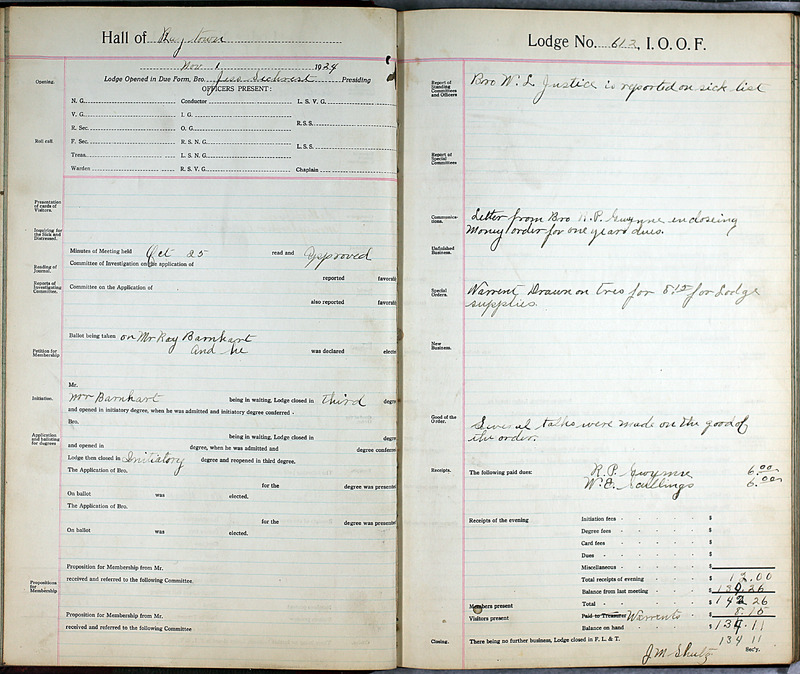 Hall of Raytown
Nov 1 1924
Opening.
Lodge Opened in Due Form, Bro. Jess Sechrest Presiding
OFFICERS PRESENT:
N. G. Conductor L. S. V. G.
V. G. I. G.
R. Sec. O. G. R.S.S.
Roll call.
F. Sec. R. S. N. G.
L.S.S.
Treas. L. S. N. G.
Warden R. S. V. G. Chaplain
Presentation of cards of Visitors.
Inquiring for the Sick and Distressed.
Minutes of Meeting held Oct 25 read and Approved
Reading of Journal.
Committee of Investigation on the application of
reported favora
Reports of Investigating Committee.
Committee on the Application of
also reported favora
Ballot being taken on Mr Ray Barnhart
Petition for Membership
and he was declared elect
Mr.
Initiation.
Mr Barnhart being in waiting, Lodge closed in third degre
and opened in initiatory degree, when he was admitted and initiatory degree conferred -
Bro.
Application and balloting for degrees
being in waiting, Lodge closed in degre
and opened in degree, when he was admitted and degree conferre
Lodge then closed in Initiatory degree and reopened in third degree.
The Application of Bro.
for the degree was presente
On ballot was elected.
The Application of Bro.
for the degree was presente
On ballot was elected.
Proposition for Membership from Mr.
Propositions for Membership
received and referred to the following Committee.
Proposition for Membership from Mr.
received and referred to the following Committee
Lodge No. 612, I. O. O. F.
Report of Standing Committees and Officers
Bro W. L Justice is reported on sick list
Report of Special Committees
Communications.
Letter from Bro R. P. Gwynne enclosing
Money order for one years dues.
Unfinished Business.
Special Orders.
Warrent Drawn on tres for 8.15 for Lodge
supplies.
New Business.
Good of the Order.
Several talks were made on the good of
the order.
Receipts.
The following paid dues: R. P. Gwynne 6.00
W. E. 6.00
Receipts of the evening Initiation fees $
Degree fees $
Card fees $
Dues $
Miscellaneous $
Total receipts of evening $ 12.00
Balance from last meeting $ 130.26
Members present Total $ 142 26
Visitors present Paid to Treasurer Warrents $ 8.15
Balance on hand $ 134.11
Closing.
There being no further business, Lodge closed in F. L. & T. 134 11
J. M. Shutz Sec'y.